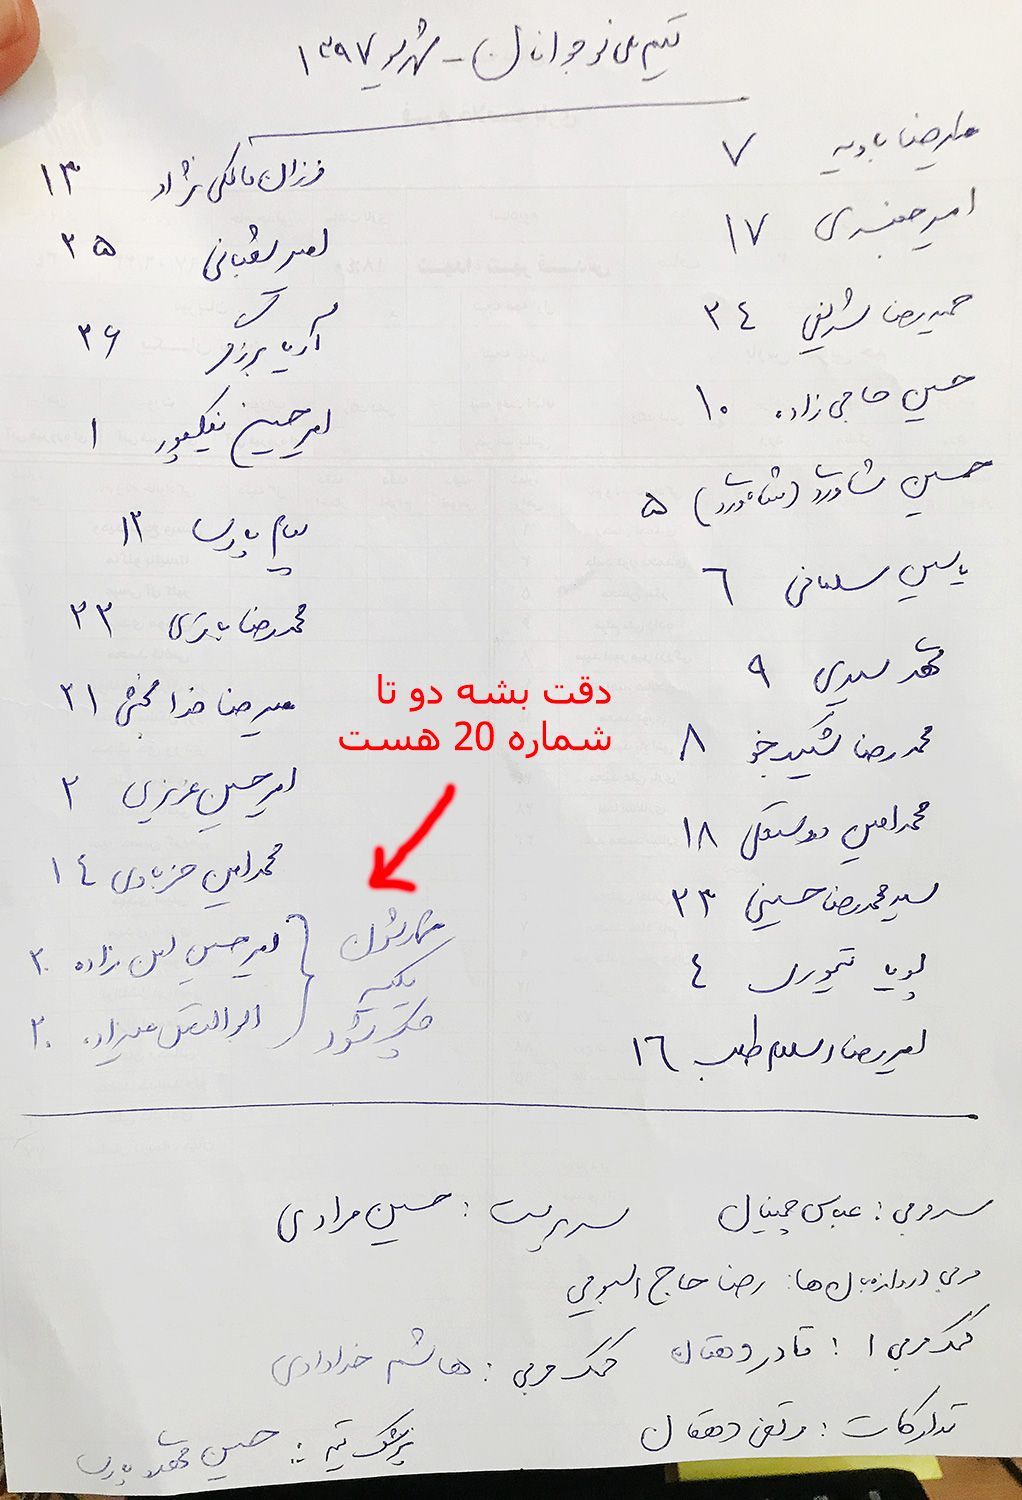 تیم ملی نوجوانان - شهریور ۱۳۹۷
علیرضا بادیه ۷
امیر جعفری ۱۷
حمیدرضا شریفی ۲۴
حسین حاجی زاده ۱۰
حسین شاوردی (شاهوردی) ۵
یاسین سلمانی ۶
محمد سعیدی ۹
محمدرضا شکیدجو ۸
محمدامین دوستعلی ۱۸
سید محمدرضا حسینی ۲۳
پویا تیموری ۴
امیررضا اسلام طلب ۱۶
فرزان مالکی نژاد ۱۳
امیر شعبانی ۲۵
آریا برزگر ۲۶
امیرحسین نیکپور ۱
پیام پارسا ۱۲
محمدرضا ۲۲
علیرضا خدابخشی ۲۱
امیرحسین عزیزی ۲
محمدامین حزباوی ۱۴
امیرحسین امین زاده ۲۰
ابوالفضل علیزاده ۲۰
شمارشون
یکیه
چک بشود
دقت بشه دو تا
شماره 20 هست
سرمربی : عباس چمنیان سرپرست : حسین مرادی
مربی دروازه بان ها : رضا حاج
کمک مربی ۱ : قادر دهقان کمک مربی : هاشم خدادادی
تدارکات : مرتضی دهقان
پزشک تیم : حسین پارسا